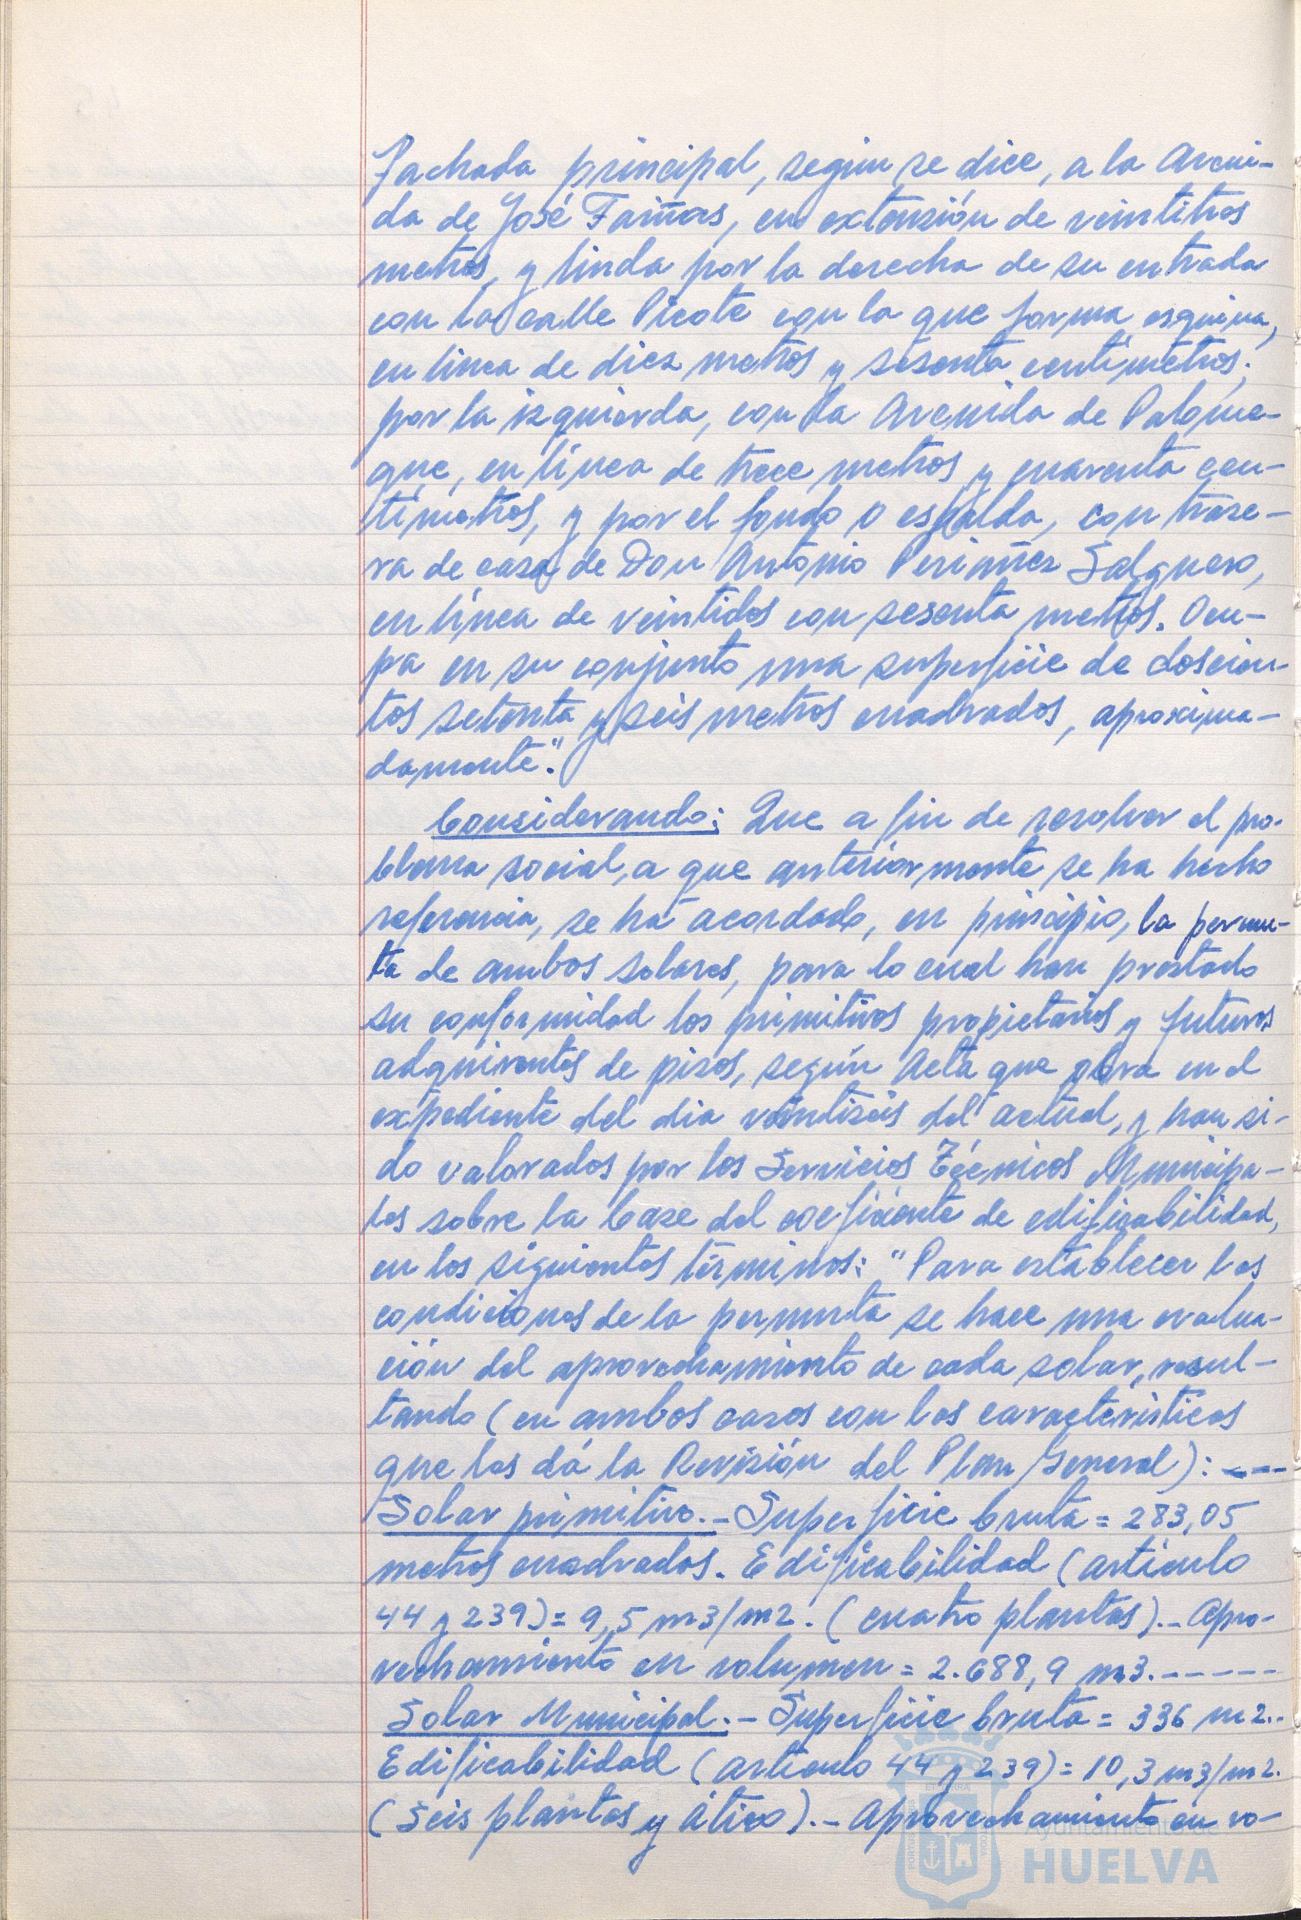 Fachada principal, según se dice, a la Aveni-
da de José Fariñas, en extensión de veintitres
metros, y linda por la derecha de su entrada
con la calle Picote con la que forma esquina,
en línea de diez metros y sesenta centímetros;
por la izquierda, con la Avenida de Palome-
que, en línea de trece metros y cuarenta cen-
tímetros, y por el fondo o espalda, con trase-
ra de casa de Don Antonio Periañez Salguero,
en línea de veintidos con sesenta metros. Ocu-
pa en su conjunto una superficie de doscien-
tos setenta y seis metros cuadrados, aproxima-
damente".
Considerando: Que a fin de resolver el pro-
blema social, a que anteriormente se ha hecho
referencia, se ha acordado, en principio, la permu-
ta de ambos solares, para lo cual han prestado
su conformidad los primitivos propietarios y futuros
adquirentes de pisos, según Acta que obra en el
expediente del dia veintiseis del actual, y han si-
do valorados por los Servicios Técnicos Municipa-
les sobre la base del coeficiente de edificabilidad,
en los siguientes términos: "Para establecer las
condiciones de la permuta se hace una evalua-
ción del aprovechamiento de cada solar, resul-
tando (en ambos casos con las características
que les dá la Revisión del Plan General): ---
Solar primitivo.- Superficie bruta = 283,05
metros cuadrados. Edificabilidad (artículo
44 y 239) = 9,5 m3/m2. (cuatro plantas).- Apro-
vechamiento en volumen = 2.688,9 m3.-----
Solar Municipal.- Superficie bruta = 336 m2.-
Edificabilidad (artículo 44 y 239) = 10,3 m3/m2.
(Seis plantas y ático).- Aprovechamiento en vo-
Ayuntamiento de
HUELVA